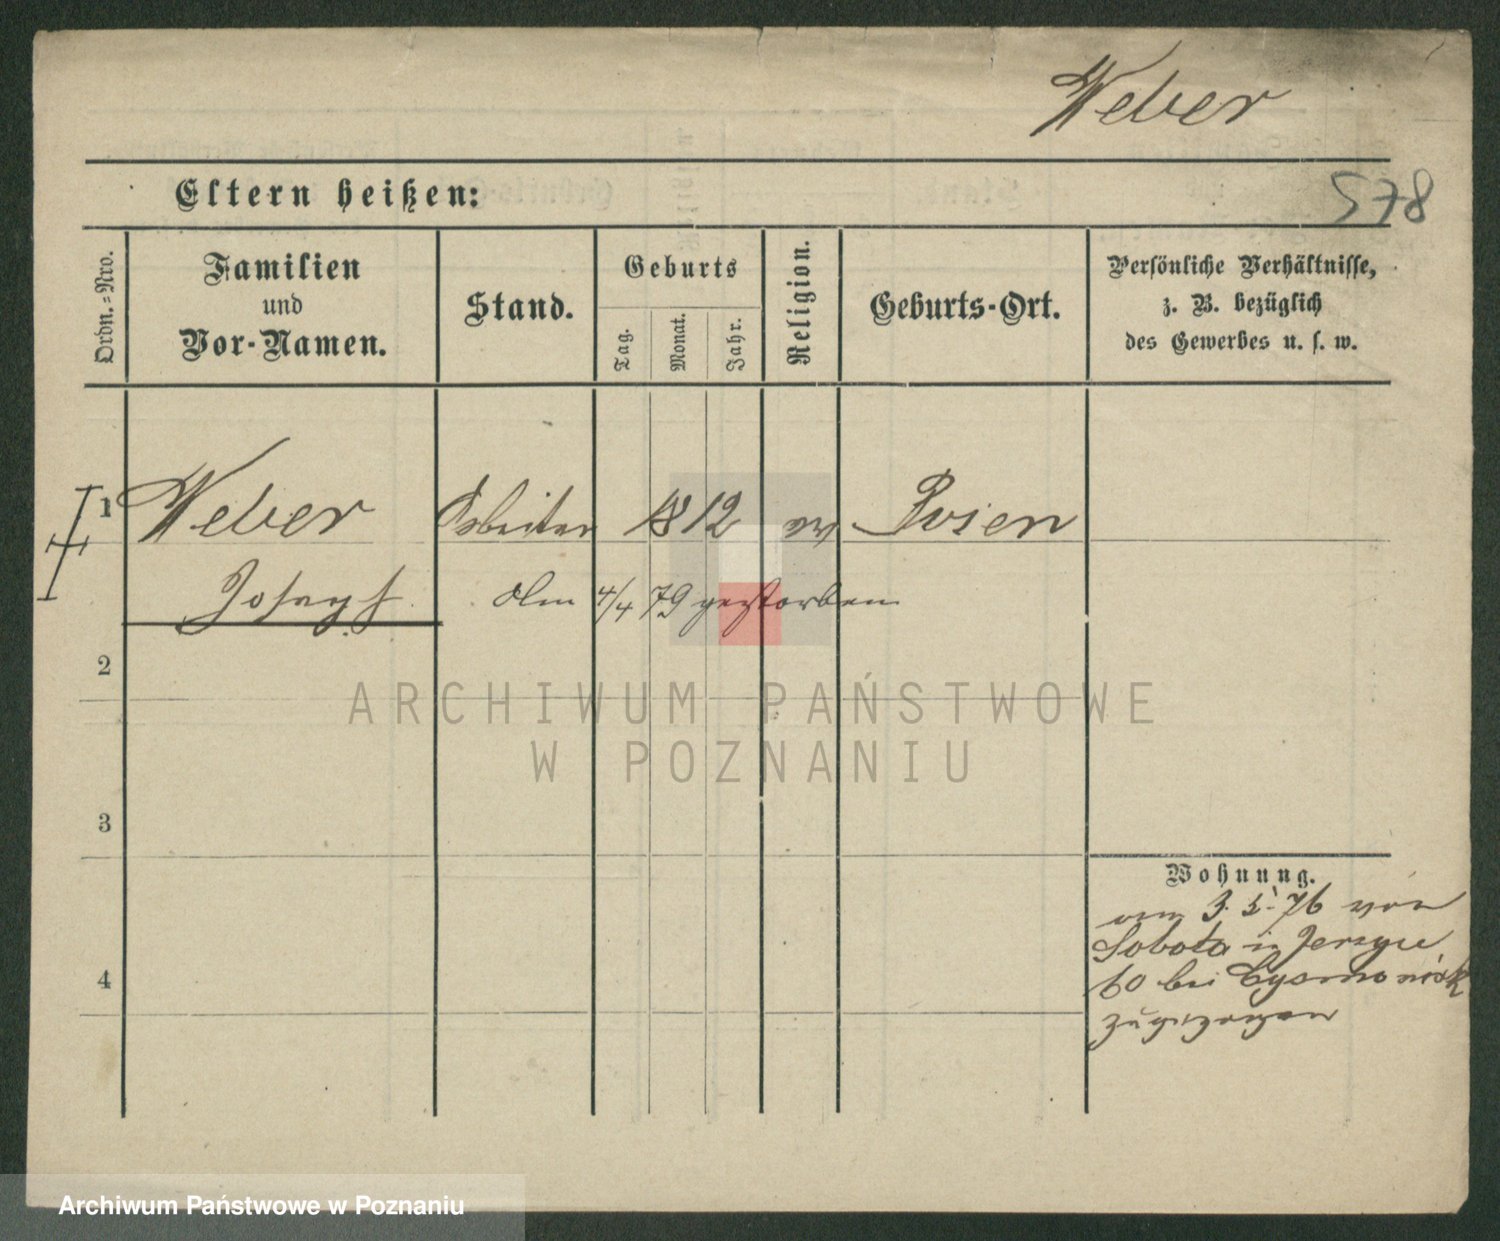 Weber
Eltern heißen:
578
Ordn.=Nro.
Familien
und
Vor-Namen.
Stand.
Geburts
Tag.
Monat.
Jahr.
Religion.
Geburts-Ort.
Persönliche Verhältnisse,
z. B. bezüglich
des Gewerbes u. s. w.
1
Weber
Arbeiter
1812
Posen
Joseph
Am 4/4 79 gestorben
2
ARCHIWUM PAŃSTWOWE
W POZNANIU
3
Wohnung.
am 3. 5. 76 von
Sobota in Jerzyce
4
60 bei
zugezogen
Archiwum Państwowe w Poznaniu